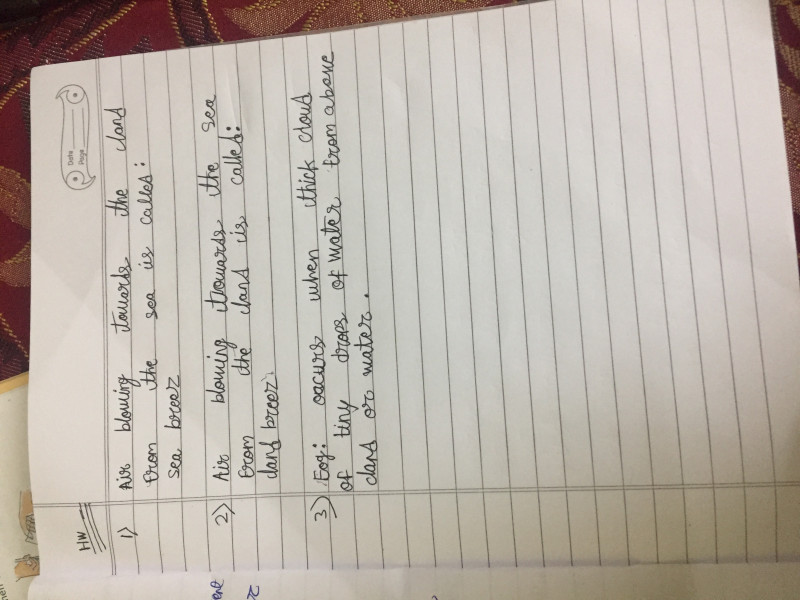 Date
Page
HW
1) Air blowing towards the land
from the sea is called:
sea breez
2) Air blowing trowards the sea
from the land is called:
land breez
3) Fog: oacurs when thick cloud
of tiny drops of water from above
land or water.